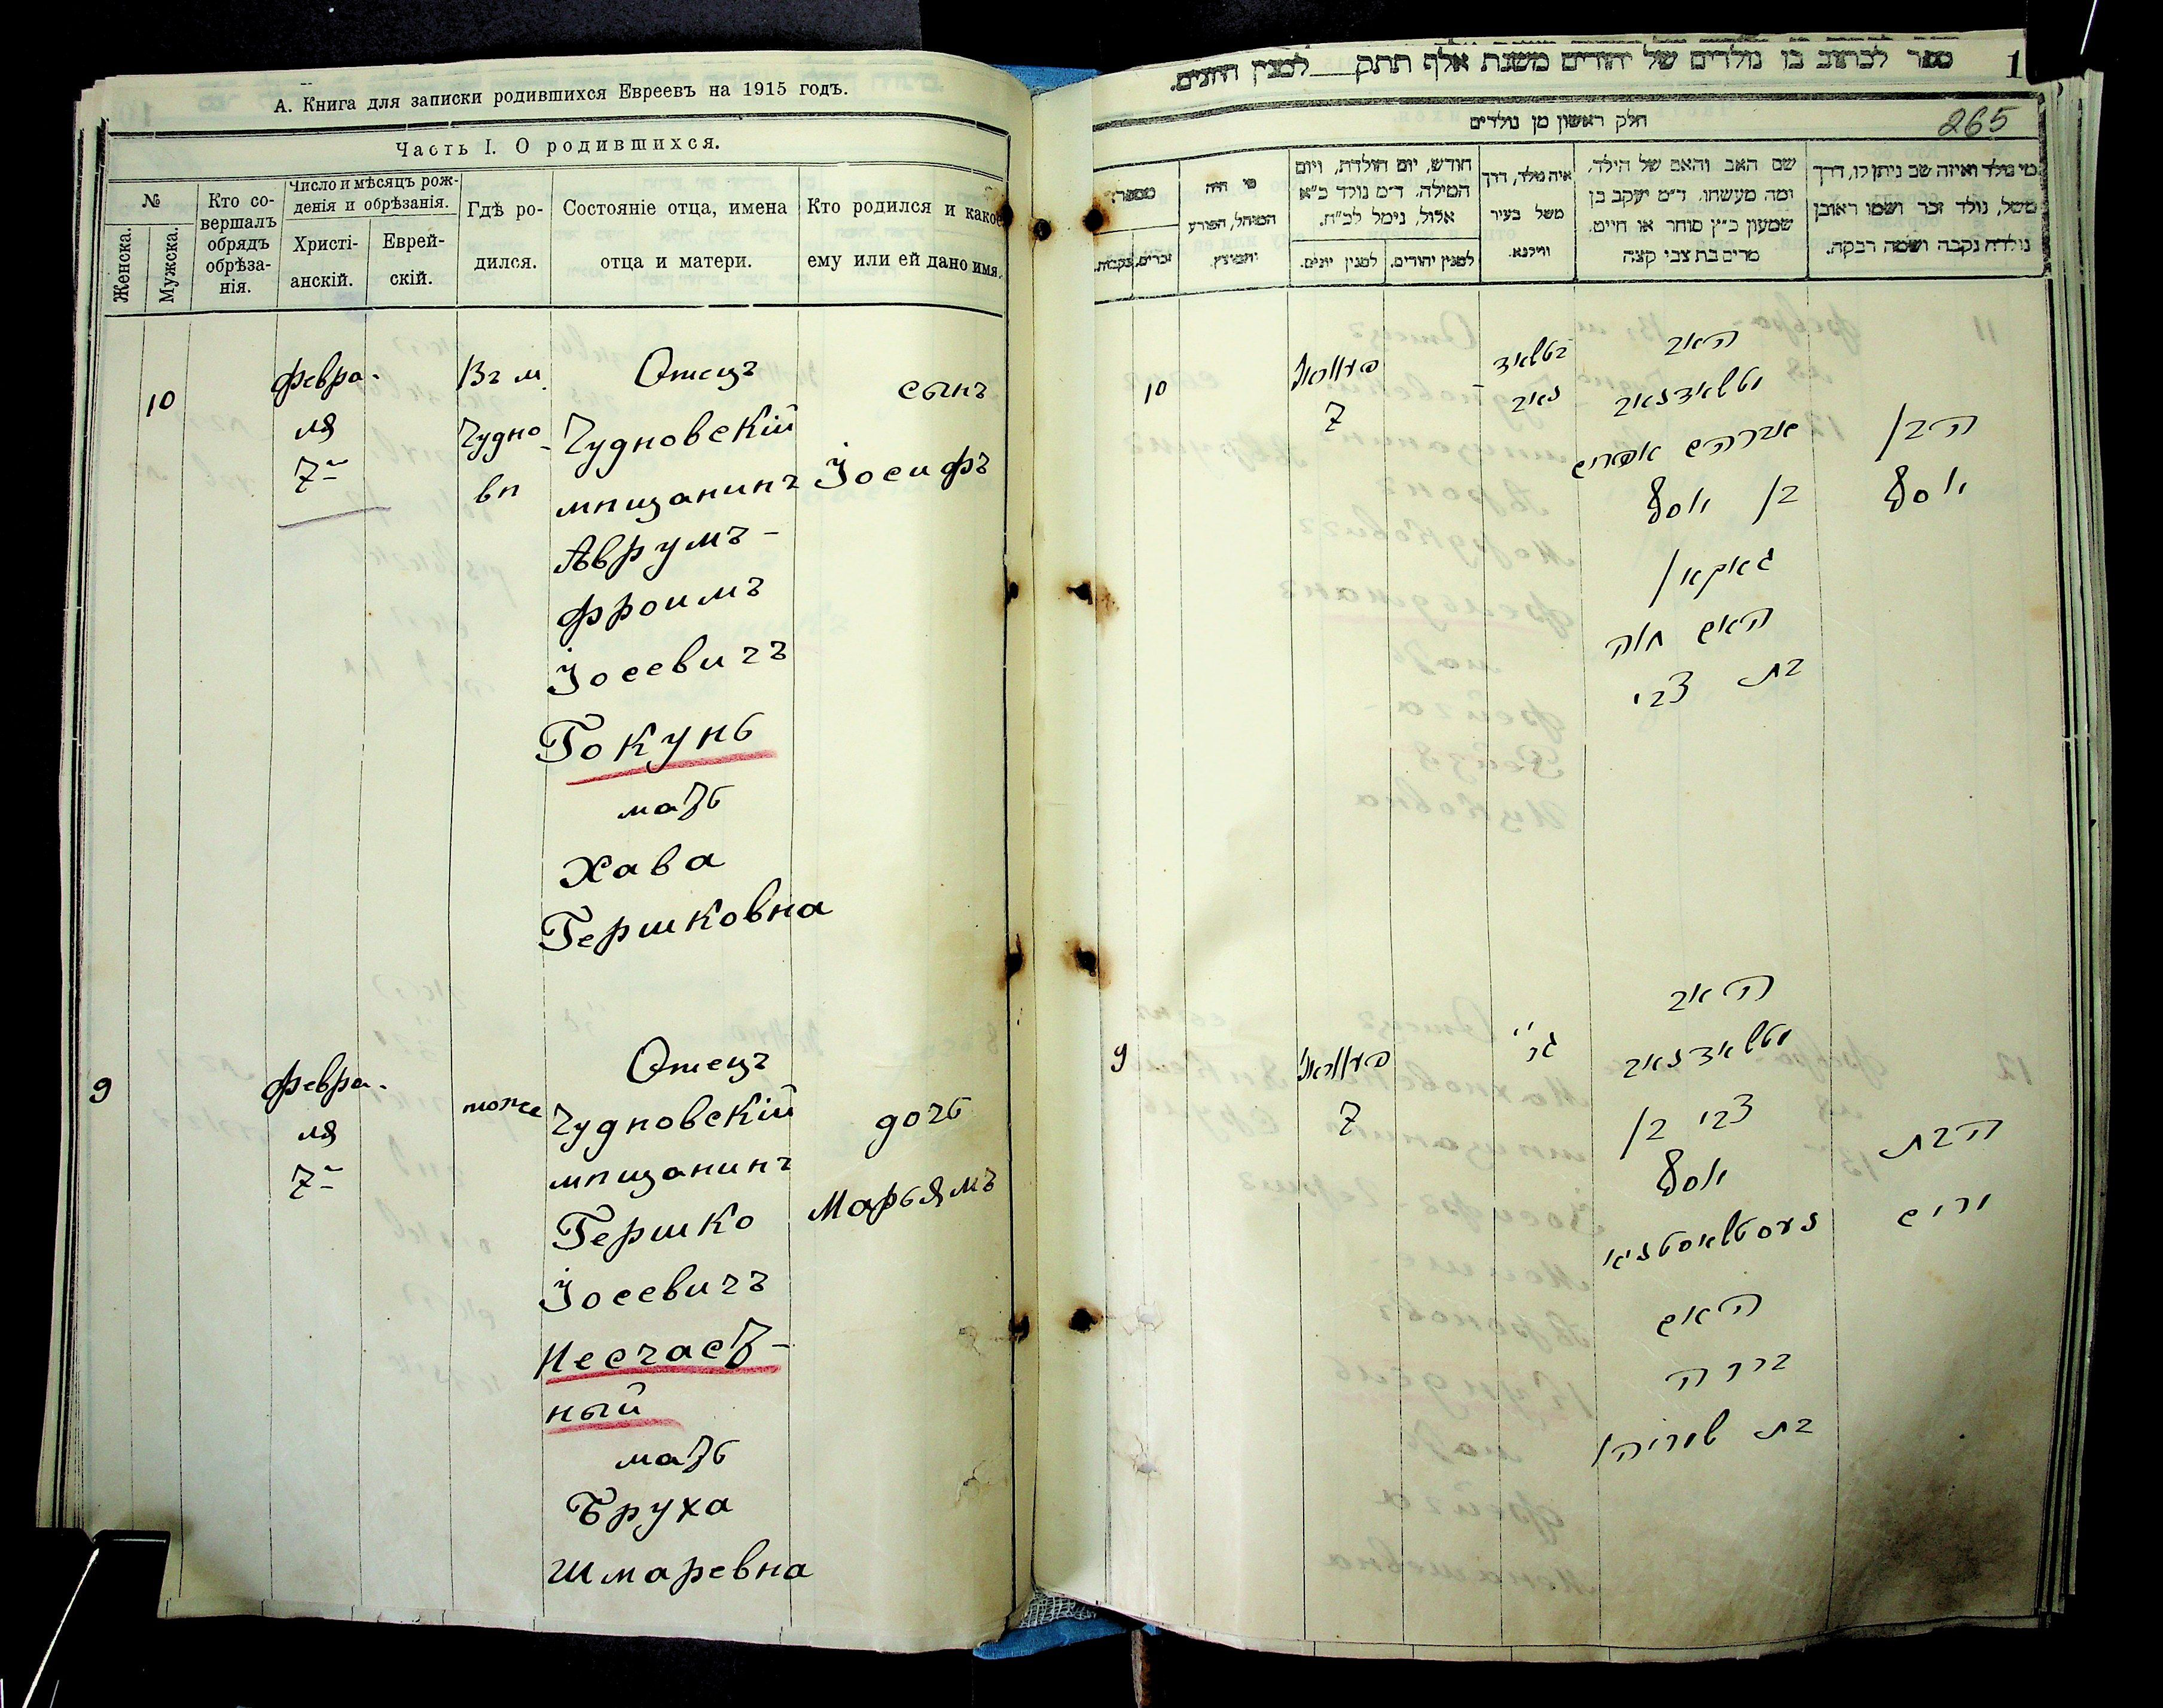 А. Книга для записки родившихся Евреевъ на 1915 годъ.
Часть I. О родившихся.
№
Женска.
Мужска.
Кто со-
вершалъ
обрядъ
обрѣза-
нія.
Число и мѣсяцъ рож-
денія и обрѣзанія.
Христі-
анскій.
Еврей-
скій.
Гдѣ ро-
дился.
Состояніе отца, имена
отца и матери.
Кто родился и какое
ему или ей дано имя.
10
февра-
ля
7-
Въ м.
Чудно-
вѣ
Отецъ
Чудновскій
мѣщанинъ
Аврумъ-
Фроимъ
Іосевичъ
Гокунь
мать
Хава
Гершковна
сынъ
Іосифъ
9
февра-
ля
7-
тоже
Отецъ
Чудновскій
мѣщанинъ
Гершко
Іосевичъ
Несчаст-
ный
мать
Бруха
Шмаревна
дочь
Марьямъ
ספר לכתוב בו נולדים של יהודים משנת אלף תתק למנין היונים.
1
265
חלק ראשון מן נולדים
מי נולד ואיזה שם ניתן לו, דרך
משל, נולד זכר ושמו ראובן
נולדה נקבה ושמה רבקה.
שם האב והאם של הילד,
ומה מעשהו. ד״מ יעקב בן
שמעון כ״ץ סוחר או חייט.
מרים בת צבי קצה
איה נולד, דרך
משל בעיר
ווילנא.
חודש, יום הולדת, ויום
המילה. ד״מ נולד כ״א
אלול, נימל לכ״ח.
למנין יהודים.
למנין יונים.
מי היה
המוהל, הפורע
והמוצץ.
מספר
זכרים.
נקבות.
10
7
האב
אברהם אפרים
בן יוסף
גאקאן
האם חוה
בת צבי
הבן
יוסף
9
7
האב
צבי בן
יוסף
האם
ברכה
בת שמריהו
הבת
מרים